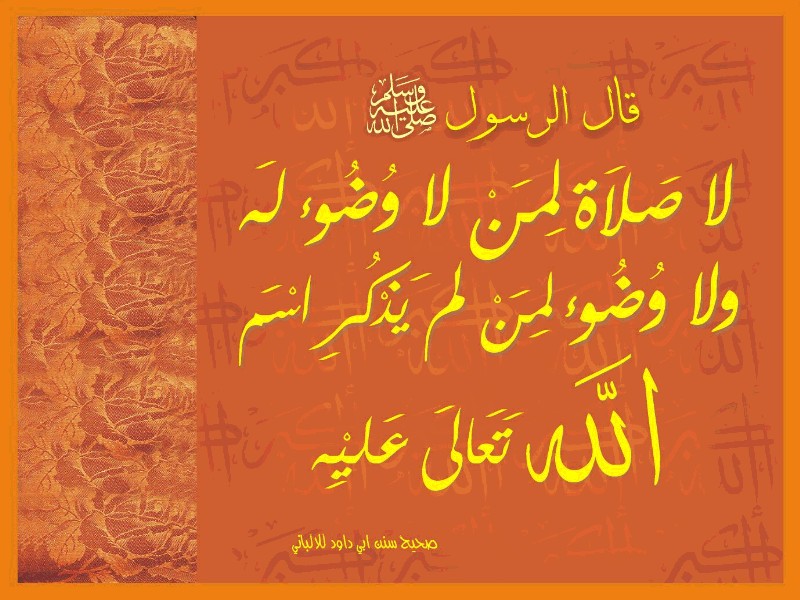 قال الرسول ﷺ
لا صَلاَة لِمَنْ لا وُضُوء لَه
ولا وُضُوء لِمَنْ لم يَذْكُرِ اسْمَ
اللَّه تَعَالىَ عَليْهِ
صحيح سنن ابي داود للالباني